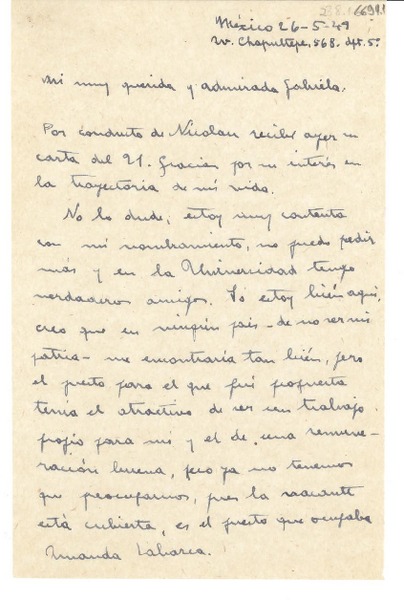 México 26-5-49
Av. Chapultepec, 568. dpt. 5º
Mi muy querida y admirada Gabriela.
Por conducto de Nicolau recibí ayer su
carta del 21. Gracias por su interés en
la trayectoria de mi vida.
No lo dude, estoy muy contenta
con mi nombramiento, no puedo pedir
más y en la Universidad tengo
verdaderos amigos. Yo estoy bién aquí,
creo que en ningún pais - de no ser mi
patria - me encontraría tan bién, pero
el puesto para el que fuí propuesta
tenía el atractivo de ser un trabajo
propio para mí y el de una remune-
ración buena, pero ya no tenemos
que preocuparnos, pues la vacante
está cubierta, es el puesto que ocupaba
Amanda Labarca.